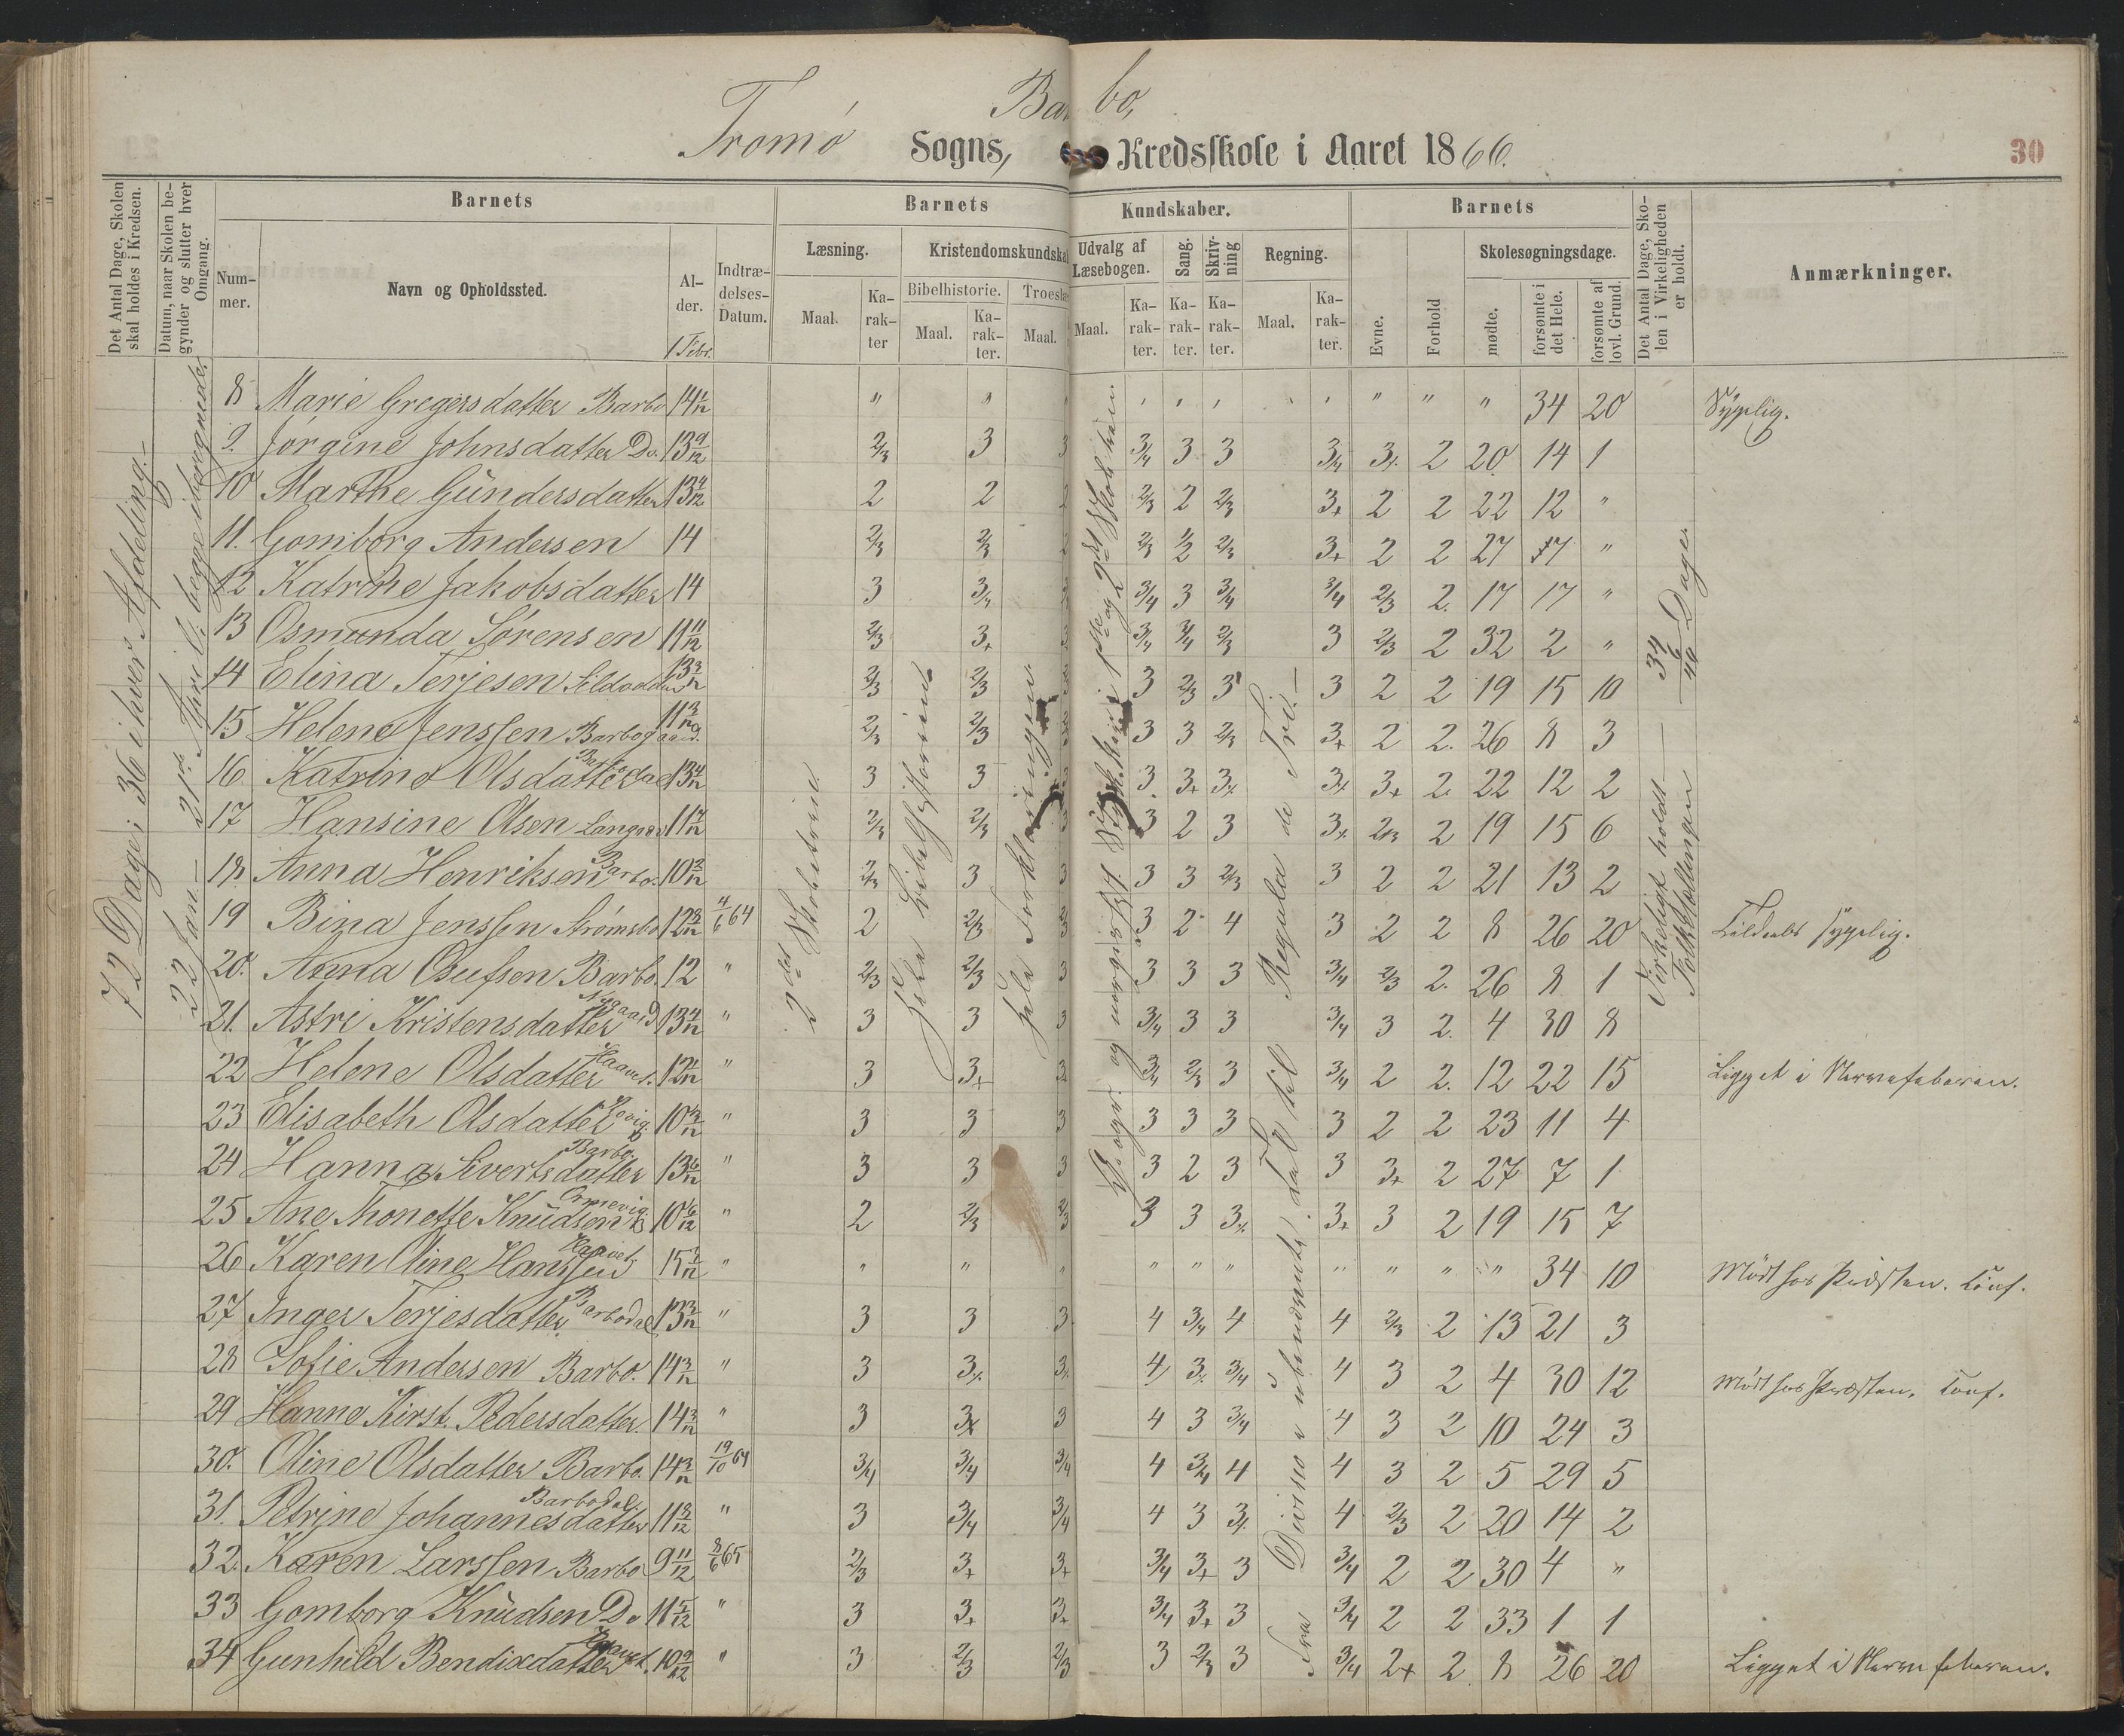 Barbo,
Tromø Sogns, Kredsskole i Aaret 1866.
30
Det Antal Dage, Skolen skal holdes i Kredsen.
Datum, naar Skolen begynder og slutter hver Omgang.
Barnets
Nummer.
Navn og Opholdssted.
Alder.
1 Febr.
Indtrædelses-Datum.
Barnets Kundskaber.
Læsning.
Maal.
Karakter
Kristendomskundskab
Bibelhistorie.
Maal.
Karakter.
Troeslæ
Maal.
Udvalg af Læsebogen.
Maal.
Karakter.
Sang.
Karakter.
Skrivning
Karakter.
Regning.
Maal.
Karakter.
Barnets
Evne.
Forhold
Skolesøgningsdage.
mødte.
forsømte i det Hele.
forsømte af lovl. Grund.
Det Antal Dage, Skolen i Virkeligheden er holdt.
Anmærkninger.
72 Dage; 36 i hver Afdeling.
22 Jan. — 21de April; begge iberegnede.
2det Skoletrin
Hele Bibelhistorien
Hele Forklaringen
1ste og 2det Skoletrin
Regula de Tri.
Fra Division i ubenævnte Tal til
Virkeligt holdt 34 Dage
Folketællingen 6
40
8 Marie Gregersdatter Barbo 14 1/12 " " " " " 34 20 Sygelig.
9. Jørgine Johnsdatter Do. 13 9/12 2/3 3 3 3/4 3 3 3/4 3 2 20 14 1
10 Marthe Gundersdatter 13 4/12 2 2 2 2/3 2 2/3 3+ 2 2 22 12 "
11. Gomborg Andersen 14 2/3 2/3 2 2/3 1/2 2/3 3+ 2 2 27 7 "
12 Katrine Jakobsdatter 14 3 3/4 3/4 3 3/4 3/4 2/3 2. 17 17 "
13 Osmunda Sørensen 11 11/12 2/3 3+ 3 3/4 3/4 2/3 3 2/3 2 32 2 "
14 Elina Terjesen Sildodden 13 3/12 2/3 2/3 3 2/3 3 3 2 2 19 15 10
15 Helene Jenssen Barbogaard. 11 3/12 2/3 2/3 3 3 2/3 3+ 2 2. 26 8 3
16. Katrine Olsdatter Barbodal 13 4/12 3 3 3 3+ 3 3 3+ 2 22 12 2
17 Hansine Olsen 2/3 2/3 3 3 2 3 3 2/3 2 19 15 6
18 Anna Henriksen Barbo. 10 2/12 2/3 3 3 3 3 2/3 3 2 2 21 13 2
19 Bina Jenssen Strømsbo 12 8/12 4/6 64 2 2/3 2/3 3 2 4 3 2 2 8 26 20 sygelig.
20. Anna Osufsen Barbo. 12 " 2/3 2/3 3 3 3 3 3/4 2/3 2. 26 8 1
21. Astri Kristensdatter Nygaard 13 4/12 " 3 3 3 3/4 3 3 3/4 3 2. 4 30 8
22 Helene Olsdatter Haavet. 12 4/12 " 3 3+ 3 3/4 2/3 3 3/4 2 2. 12 22 15 Ligget i Nervefeberen.
23 Elisabeth Olsdatter 10 " 3 3 3 3 3 3 3 2 2 23 11 4
24 Hanna Sivertsdatter Barbo. 13 6/12 " 3 3 3 3 2 3 3 3+ 2 27 7 1
25 Ane Thonette Knudsen 10 6/12 " 2 2/3 2/3 3 3 3 3+ 3 2 19 15 7
26 Karen Oline Hanssen Haavet. 15 " " " " " " " " " " " 34 10 Mødt hos Præsten. Conf.
27 Inger Terjesdatter Barbodal 13 3/12 " 3 3 3 4 3/4 4 4 2/3 2 13 21 3
28 Sofie Andersen Barbo. 14 3/12 " 3 3 3 4 3 3/4 4 3 2 4 30 12 Mødt hos Præsten. Conf.
29 Hanne Kirst. Pedersdatter. 14 3/12 " 3 3 3 4 3 3/4 4 3 2 10 24 3
30. Oline Olsdatter Barbo. 14 3/12 19/10 64 3/4 3/4 3/4 4 3/4 4 4 3 2 5 29 5
31. Petrine Johannesdatter Barbodal 11 8/12 " 3 3/4 3/4 4 3 3 4 2/3 2 20 14 2
32. Karen Larssen Barbo 9 11/12 8/6 65 2/3 3+ 3+ 3/4 3+ 3 3/4 2 2 30 4 "
33 Gomborg Knudsen Do 11 5/12 " 3 3+ 3+ 3/4 3+ 3 3/4 2 2 33 1 1
34 Gunhild Bendixdatter Haavet. 10 9/12 " 3 2/3 2/3 3 2/3 3 3/4 2+ 2 8 26 20 Ligget i Nervefeberen.